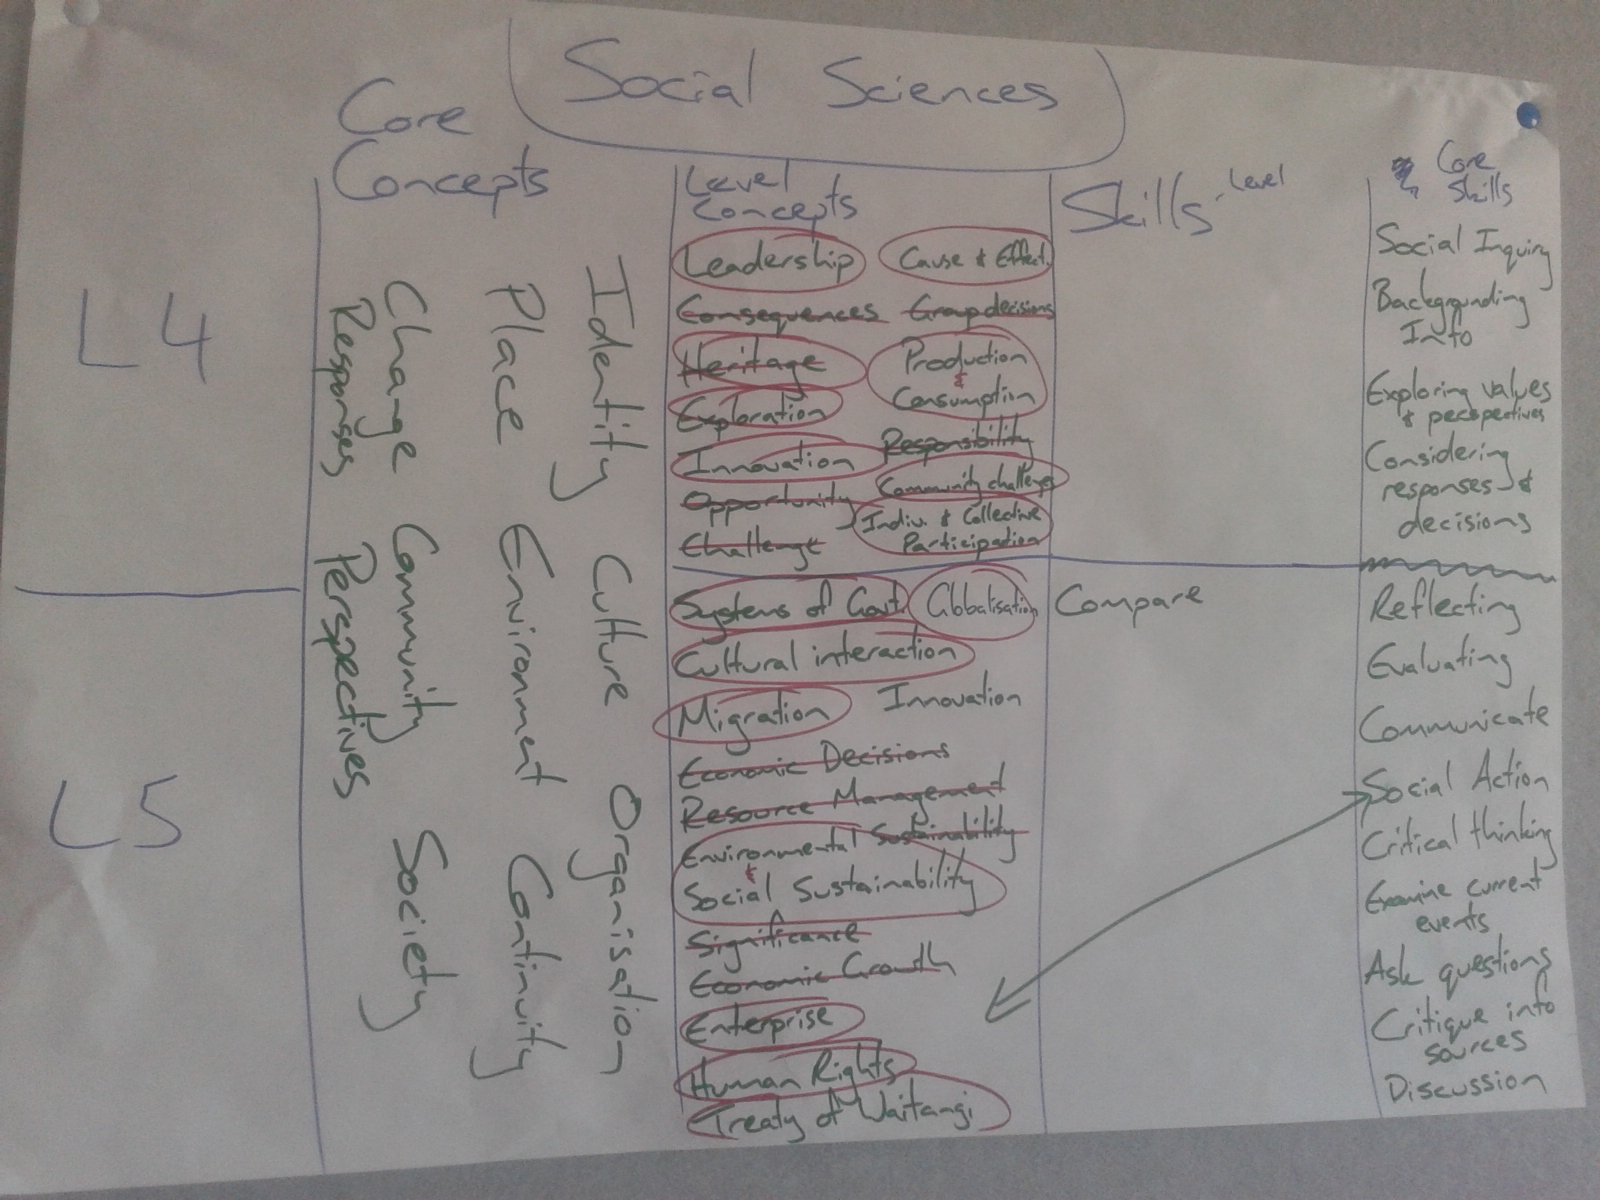 Social Sciences
Core
Concepts
Level
Concepts
Skills - Level
Core
Skills
L4
L5
Identity
Culture
Organisation
Place
Environment
Continuity
Change
Community
Society
Responses
Perspectives
Leadership
Cause & Effect.
Consequences
Group decisions
Heritage
Production
&
Consumption
Exploration
Responsibility
Innovation
Community challenges
Opportunity
Indiv. & Collective
Participation
Challenge
Systems of Govt.
Globalisation
Cultural interaction
Migration
Innovation
Economic Decisions
Resource Management
Environmental Sustainability
&
Social Sustainability
Significance
Economic Growth
Enterprise
Human Rights
Treaty of Waitangi
Compare
Social Inquiry
Backgrounding
Info
Exploring values
& perspectives
Considering
responses &
decisions
Reflecting
Evaluating
Communicate
Social Action
Critical thinking
Examine current
events
Ask questions
Critique info
sources
Discussion